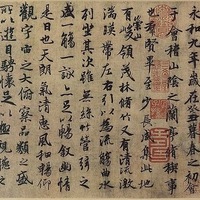 永和九年歲在癸丑暮春之初會
于會稽山陰之蘭亭脩稧事
也群賢畢至少長咸集此地
有崇山峻領茂林脩竹又有清流激
湍暎帶左右引以為流觴曲水
列坐其次雖無絲竹管弦之
盛一觴一詠亦足以暢敘幽情
是日也天朗氣清惠風和暢仰
觀宇宙之大俯察品類之盛
所以遊目騁懷足以極視聽之